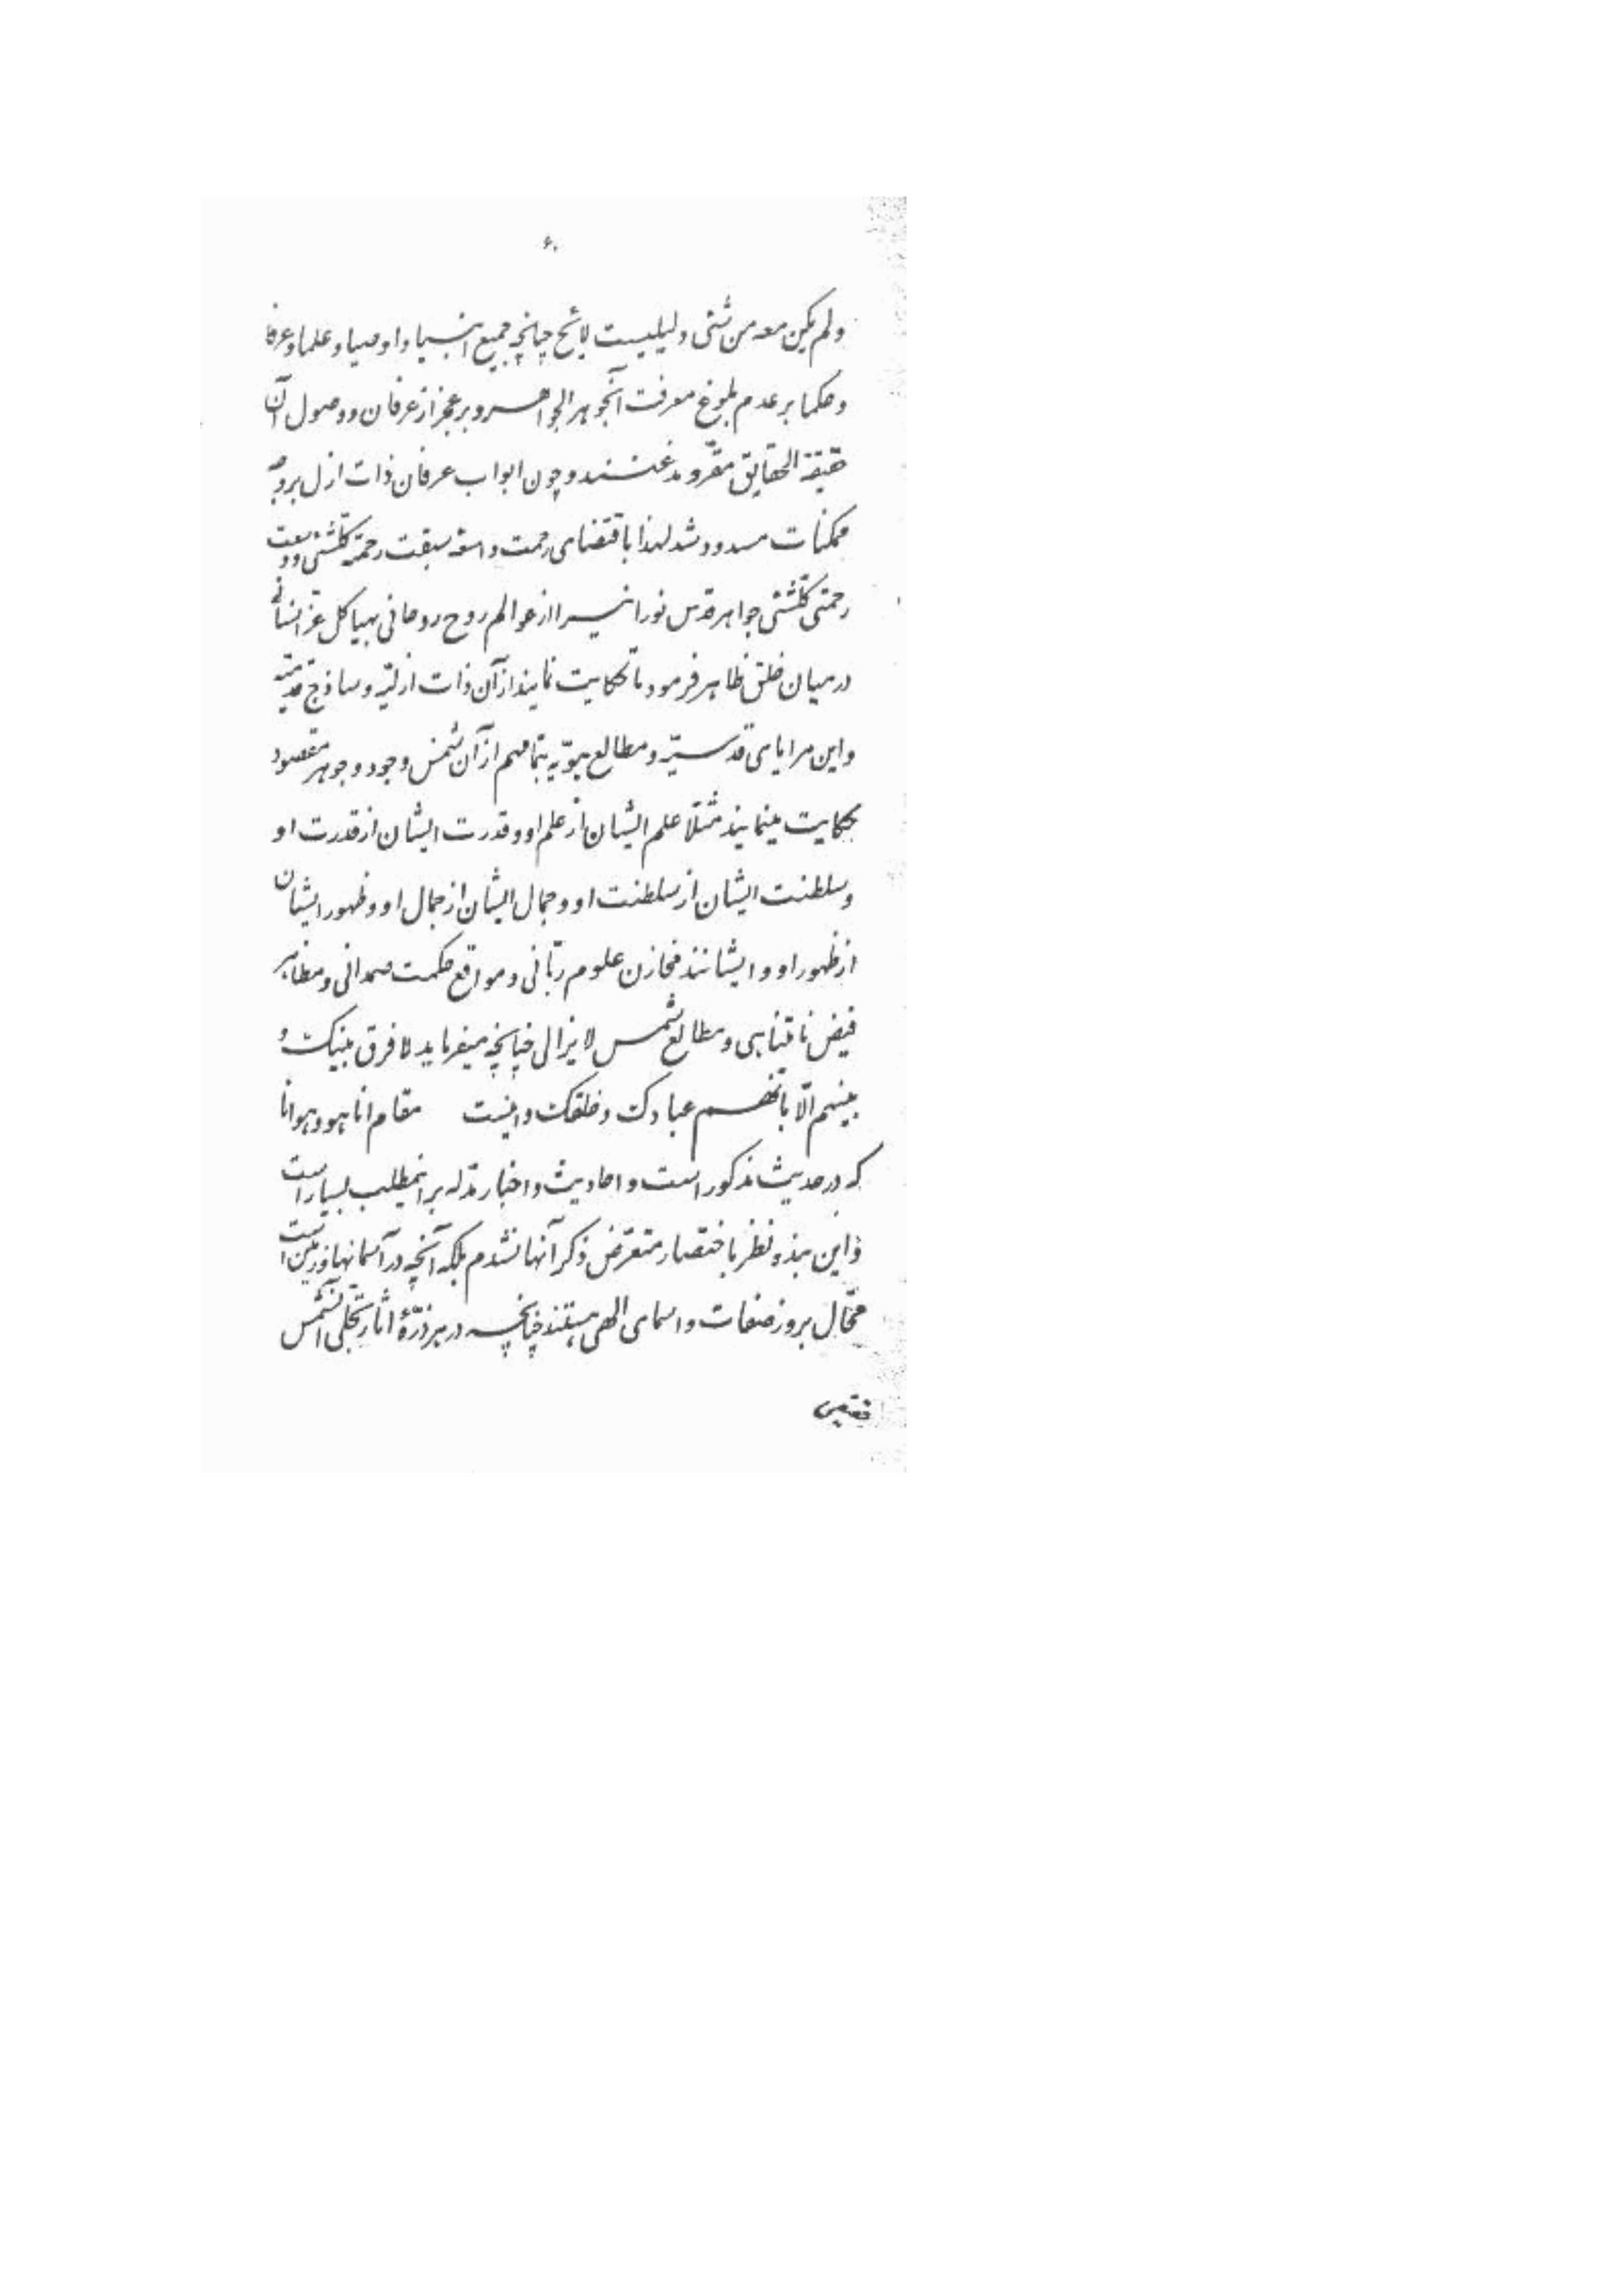 ۶۰
ولم یکن معه من شئی دلیلیست لائح چنانچه جمیع انبیا و اوصیا و علما و عرفا
و حکما بر عدم بلوغ معرفت آنجوهر الجواهر و بر عجز از عرفان و وصول آن
حقیقة الحقایق مقرّ و مذعنند و چون ابواب عرفان ذات ازل بر وجه
ممکنات مسدود شد لهذا باقتضای رحمت واسعه سبقت رحمته کلّشئی و وسعت
رحمتی کلّشئی جواهر قدس نورانیرا از عوالم روح روحانی بهیاکل عزّ انسانی
در میان خلق ظاهر فرمود تا حکایت نمایند از آن ذات ازلیّه و ساذج قدمیّه
و این مرایای قدسیّه و مطالع هویّه بتمامهم از آن شمس وجود و جوهر مقصود
حکایت مینمایند مثلا علم ایشان از علم او و قدرت ایشان از قدرت او
و سلطنت ایشان از سلطنت او و جمال ایشان از جمال او و ظهور ایشان
از ظهور او و ایشانند مخازن علوم ربّانی و مواقع حکمت صمدانی و مظاهر
فیض نامتناهی و مطالع شمس لایزالی چنانچه میفرماید لا فرق بینک و
بینهم الّا بانّهم عبادک و خلقک و اینست مقام انا هو و هو انا
که در حدیث مذکور است و احادیث و اخبار مدلّه بر اینمطلب بسیار است
و این بنده نظر باختصار متعرّض ذکر آنها نشدم بلکه آنچه در آسمانها و زمین است
محّال بروز صفات و اسمای الهی هستند چنانچه در هر ذرّهٔ اثار تجلّی آنشمس